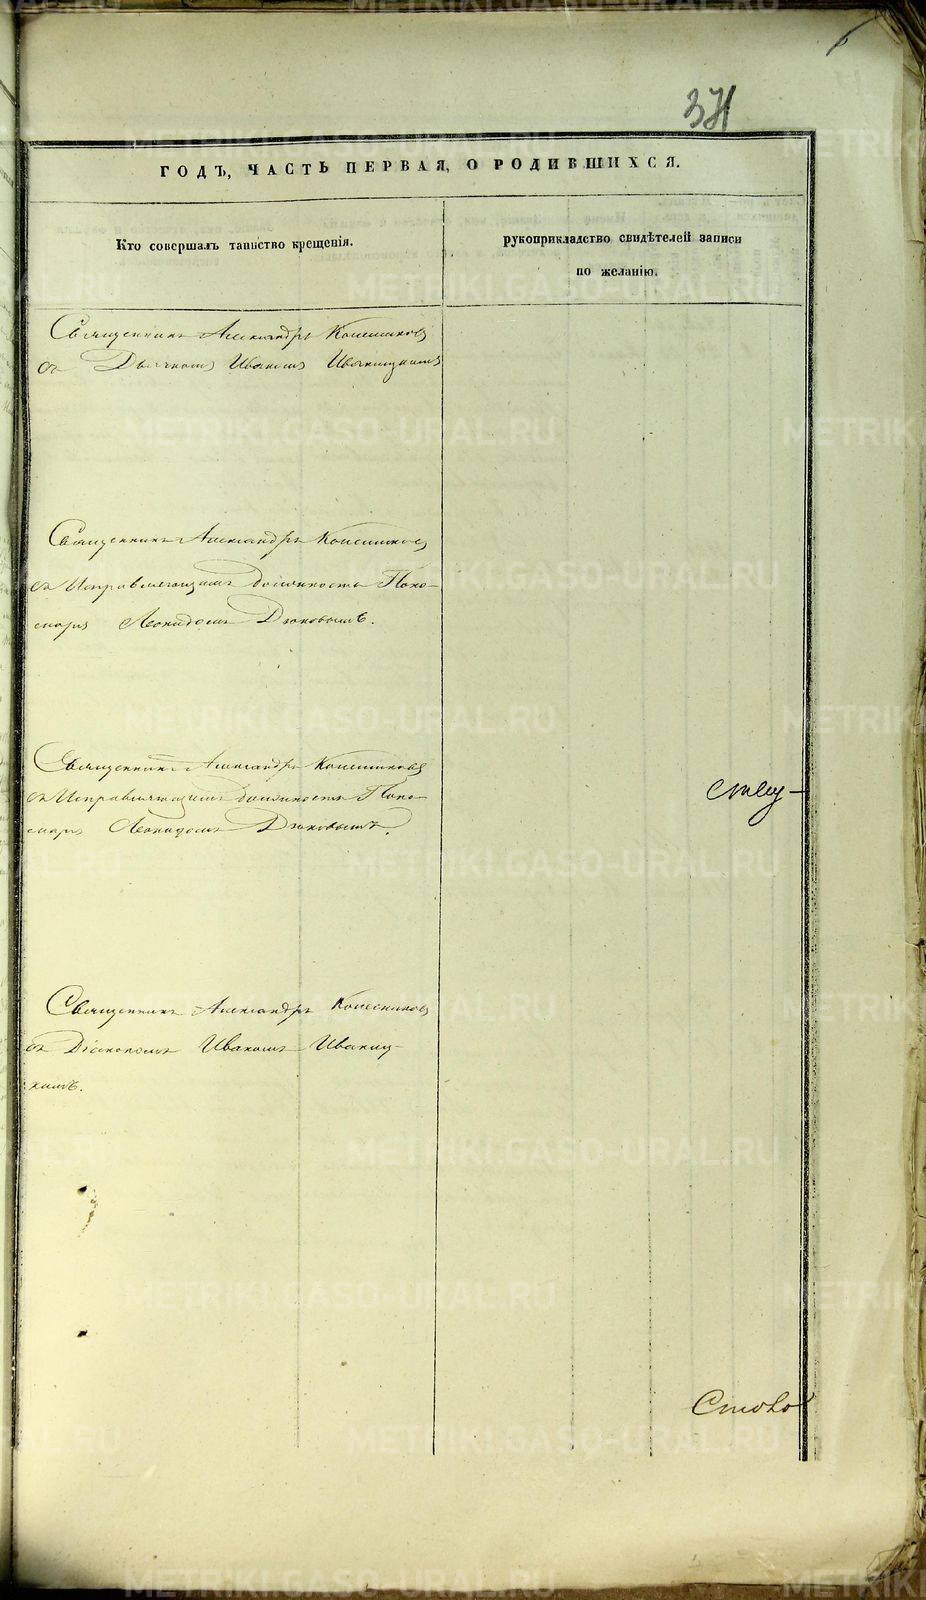 371
ГОДЪ, ЧАСТЬ ПЕРВАЯ, О РОДИВШИХСЯ.
Кто совершалъ таинство крещенія.
рукоприкладство свидѣтелей записи
по желанію.
Священникъ Александръ Колесниковъ
съ Дьячкомъ Иваномъ Иваницкимъ
Священникъ Александръ Колесниковъ
съ Исправляющимъ должность Поно-
маря Леонидомъ Дюковымъ.
Священникъ Александръ Колесниковъ
съ Исправляющимъ должность Поно-
маря Леонидомъ Дюковымъ.
Священникъ Александръ Колесниковъ
съ Діакономъ Иваномъ Иваниц-
кимъ.
METRIKI.GASO-URAL.RU